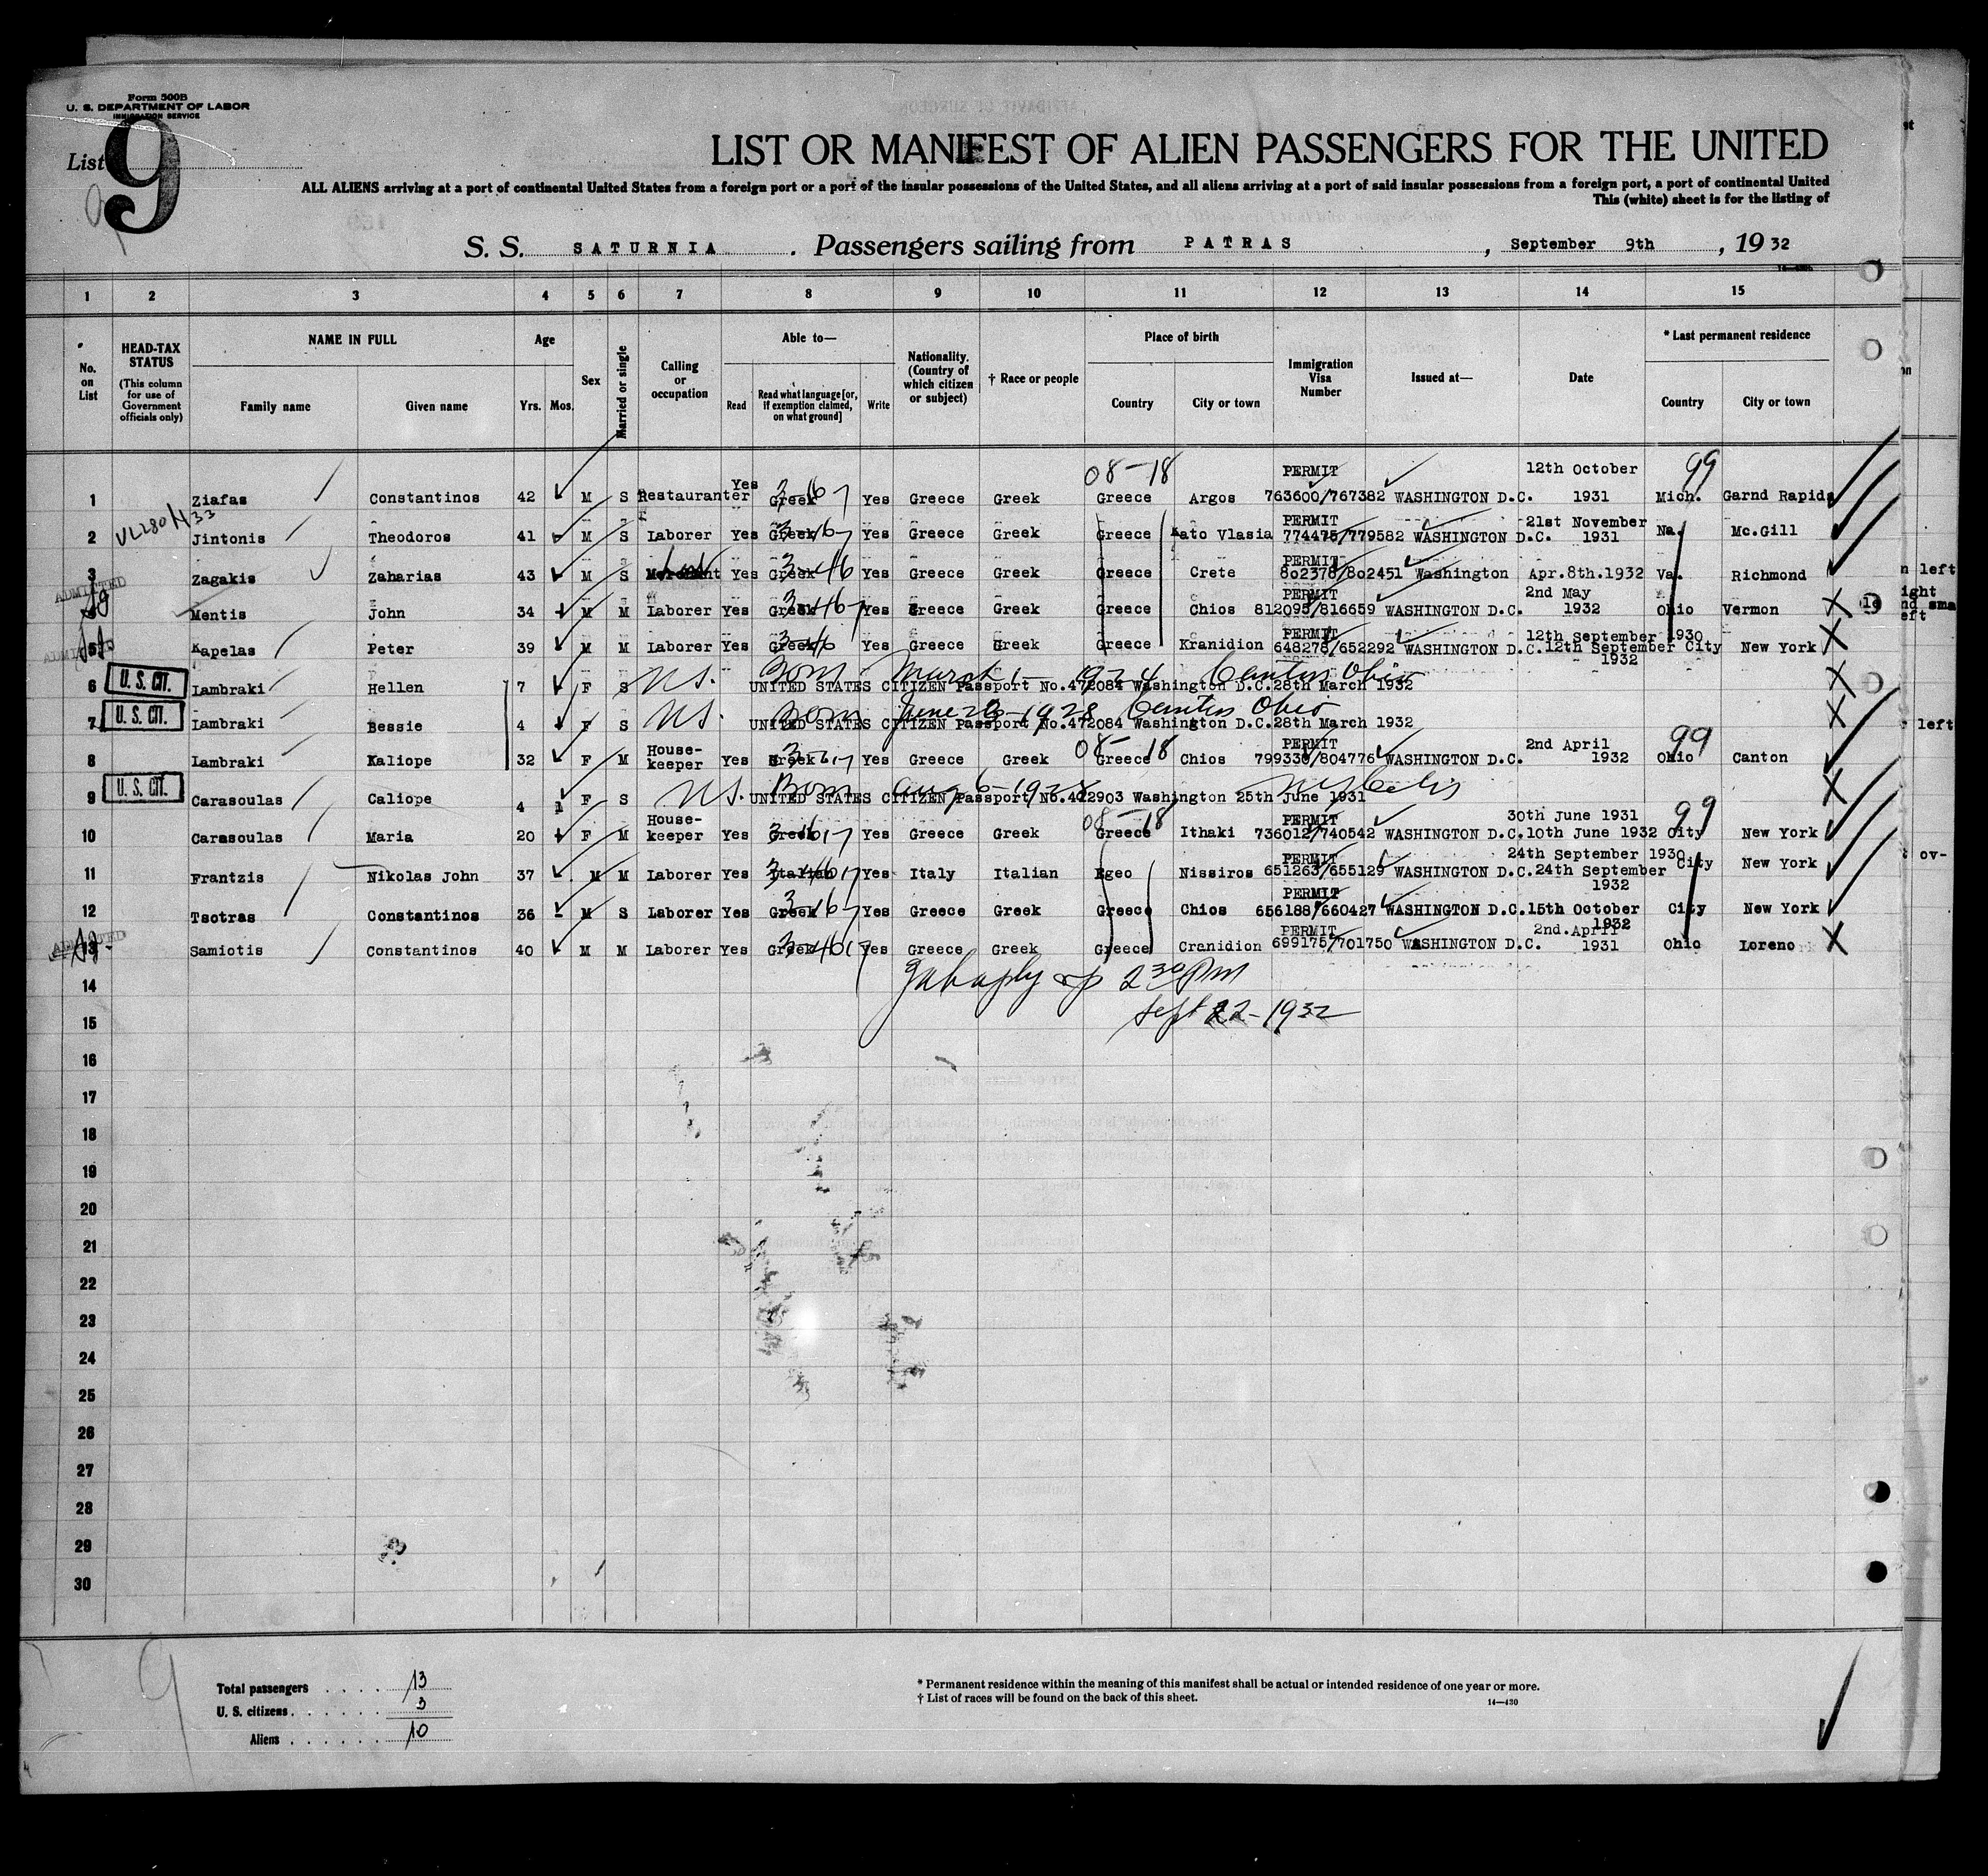 Form 500B
U. S. DEPARTMENT OF LABOR
IMMIGRATION SERVICE
List 9
9
LIST OR MANIFEST OF ALIEN PASSENGERS FOR THE UNITED
ALL ALIENS arriving at a port of continental United States from a foreign port or a port of the insular possessions of the United States, and all aliens arriving at a port of said insular possessions from a foreign port, a port of continental United
This (white) sheet is for the listing of
S. S. SATURNIA. Passengers sailing from PATRAS, September 9th, 1932
1 2 3 4 5 6 7 8 9 10 11 12 13 14 15
No. on List
HEAD-TAX STATUS
(This column for use of Government officials only)
NAME IN FULL
Family name Given name
Age
Yrs. Mos.
Sex
Married or single
Calling or occupation
Able to—
Read Read what language [or, if exemption claimed, on what ground] Write
Nationality. (Country of which citizen or subject)
† Race or people
Place of birth
Country City or town
Immigration Visa Number
Issued at—
Date
* Last permanent residence
Country City or town
08-18 PERMIT 12th October 99
1 Ziafas Constantinos 42 M S Restauranter Yes Greek Yes Greece Greek Greece Argos 763600/767382 WASHINGTON D.C. 1931 Mich. Garnd Rapids
PERMIT 21st November
2 Jintonis Theodoros 41 M S Laborer Yes Greek Yes Greece Greek Greece Kato Vlasia 774475/779582 WASHINGTON D.C. 1931 Na. Mc.Gill
PERMIT
3 Zagakis Zaharias 43 M S Merchant Yes Greek Yes Greece Greek Greece Crete 802378/802451 Washington Apr.8th.1932 Va. Richmond
ADMITTED
PERMIT 2nd May
4 Mentis John 34 M M Laborer Yes Greek Yes Greece Greek Greece Chios 812095/816659 WASHINGTON D.C. 1932 Ohio Vermon
PERMIT 12th September 1930
5 Kapelas Peter 39 M M Laborer Yes Greek Yes Greece Greek Greece Kranidion 648278/652292 WASHINGTON D.C. 12th September City New York
1932
ADMITTED
6 U. S. CIT. Lambraki Hellen 7 F S UNITED STATES CITIZEN Passport No.472084 Washington D.C.28th March 1932
U.S. Born March 1 - 1924 Canton Ohio
7 U. S. CIT. Lambraki Bessie 4 F S UNITED STATES CITIZEN Passport No.472084 Washington D.C.28th March 1932
U.S. Born June 28-1928 Canton Ohio
08-18 PERMIT 2nd April 99
8 Lambraki Kaliope 32 F M House-keeper Yes Greek Yes Greece Greek Greece Chios 799330/804776 WASHINGTON D.C. 1932 Ohio Canton
9 U. S. CIT. Carasoulas Caliope 4 1 F S UNITED STATES CITIZEN Passport No.422903 Washington 25th June 1931
U.S. Born Aug 6-1928
08-18 PERMIT 30th June 1931 99
10 Carasoulas Maria 20 F M House-keeper Yes Greek Yes Greece Greek Greece Ithaki 736012/740542 WASHINGTON D.C. 10th June 1932 City New York
PERMIT 24th September 1930
11 Frantzis Nikolas John 37 M M Laborer Yes Italian Yes Italy Italian Egeo Nissiros 651263/655129 WASHINGTON D.C. 24th September City New York
1932
PERMIT
12 Tsotras Constantinos 36 M S Laborer Yes Greek Yes Greece Greek Greece Chios 656188/660427 WASHINGTON D.C. 15th October City New York
1932
ADMITTED
PERMIT 2nd.April
13 Samiotis Constantinos 40 M M Laborer Yes Greek Yes Greece Greek Greece Cranidion 699175/701750 WASHINGTON D.C. 1931 Ohio Loreno
14
2 30 PM
15
Sept 22-1932
16
17
18
19
20
21
22
23
24
25
26
27
28
29
30
9
Total passengers . . . . 13
U. S. citizens. . . . . . . 3
Aliens . . . . . . 10
* Permanent residence within the meaning of this manifest shall be actual or intended residence of one year or more.
† List of races will be found on the back of this sheet.
14—430